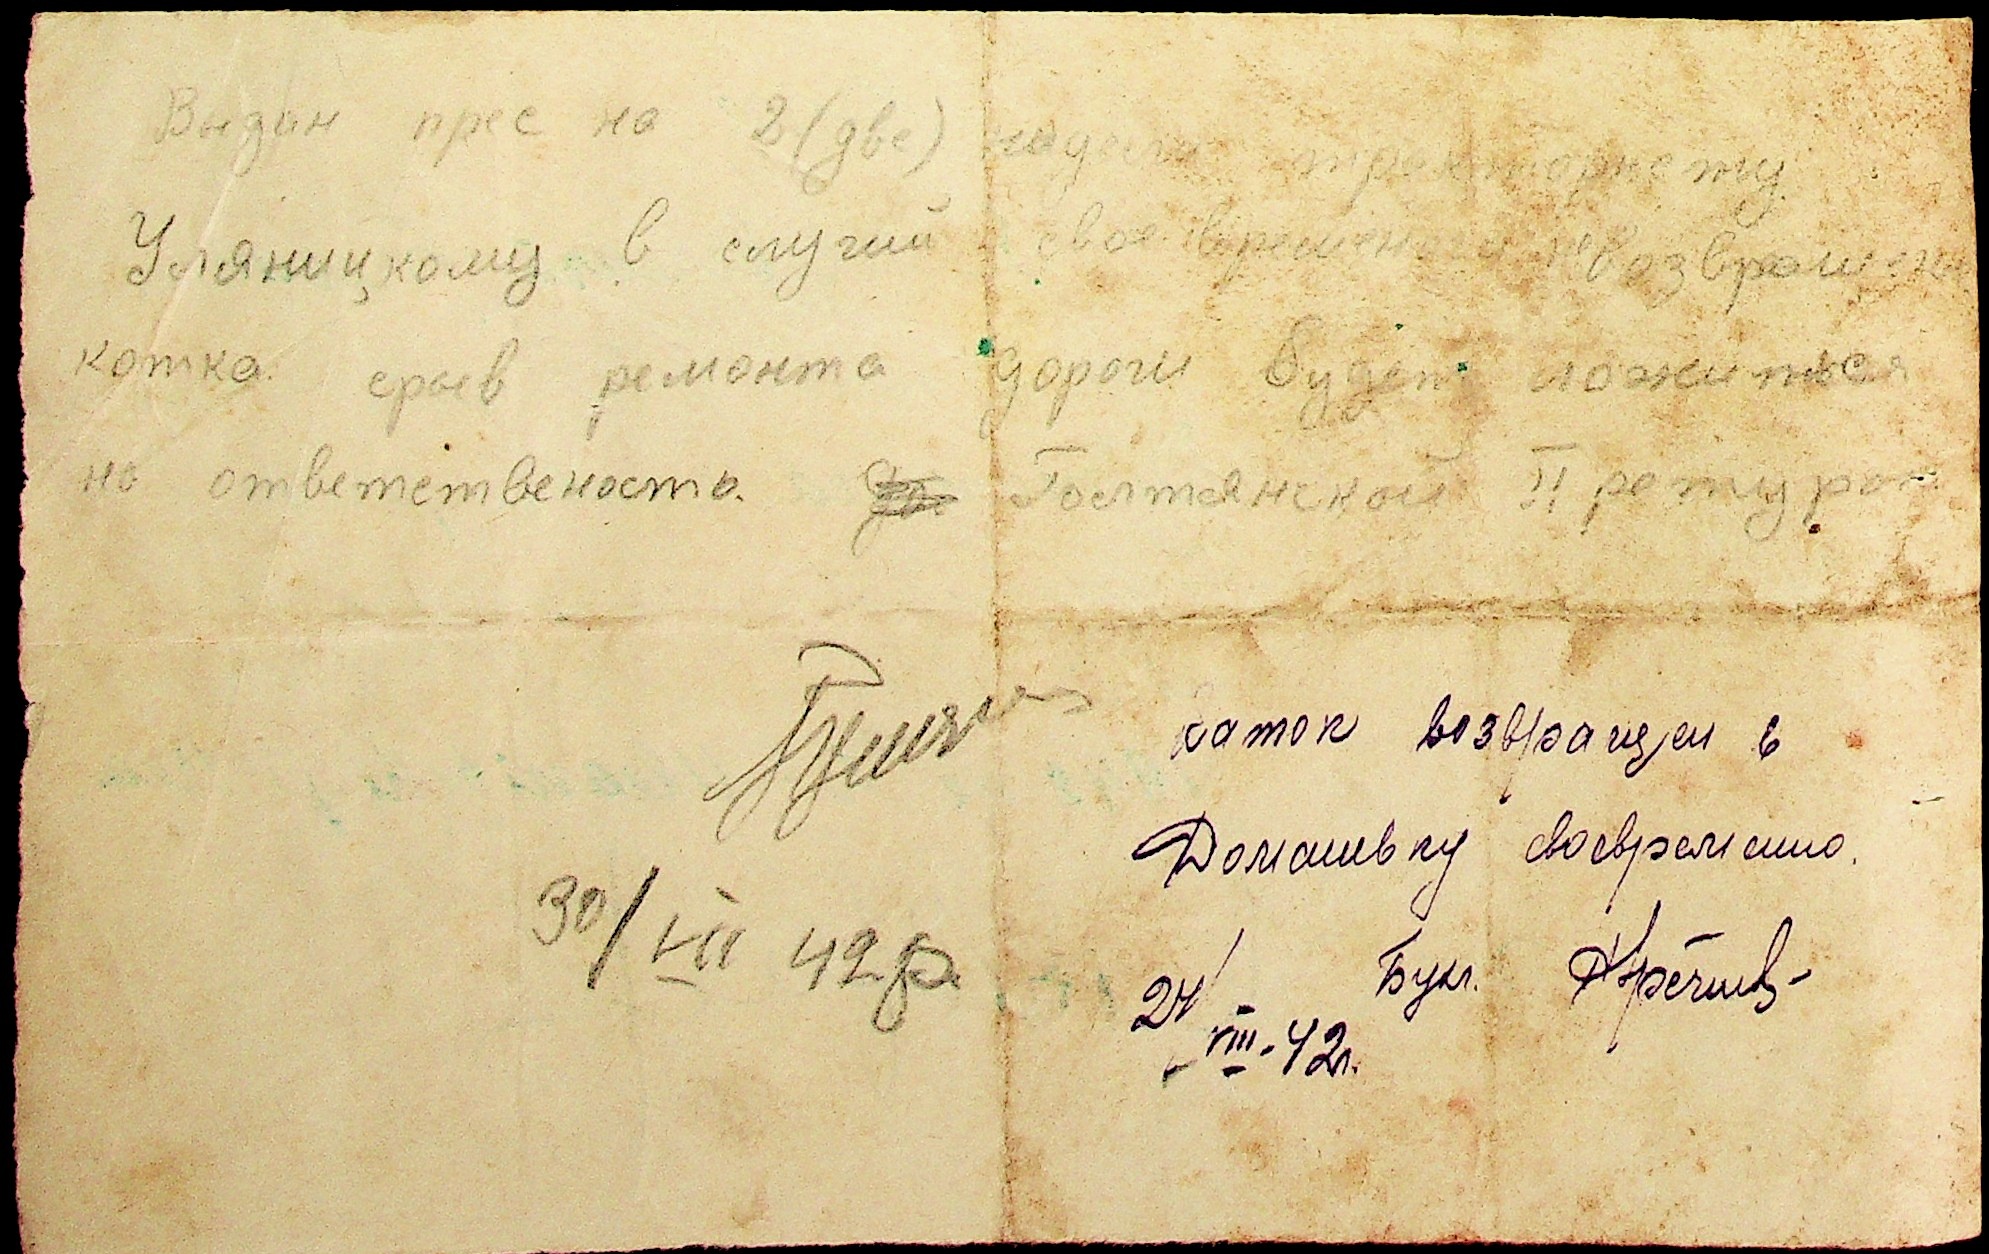 Выдан прес на 2 (две) недели трактористу
Уляницкому в случий своевремено невозвращения
котка срыв ремонта дороги будет ложиться
на ответственость Голтянской Претурой
30/VII 42 р.
Каток возвращен в
Домашевку своевременно.
24/VIII-42г. Бухг.